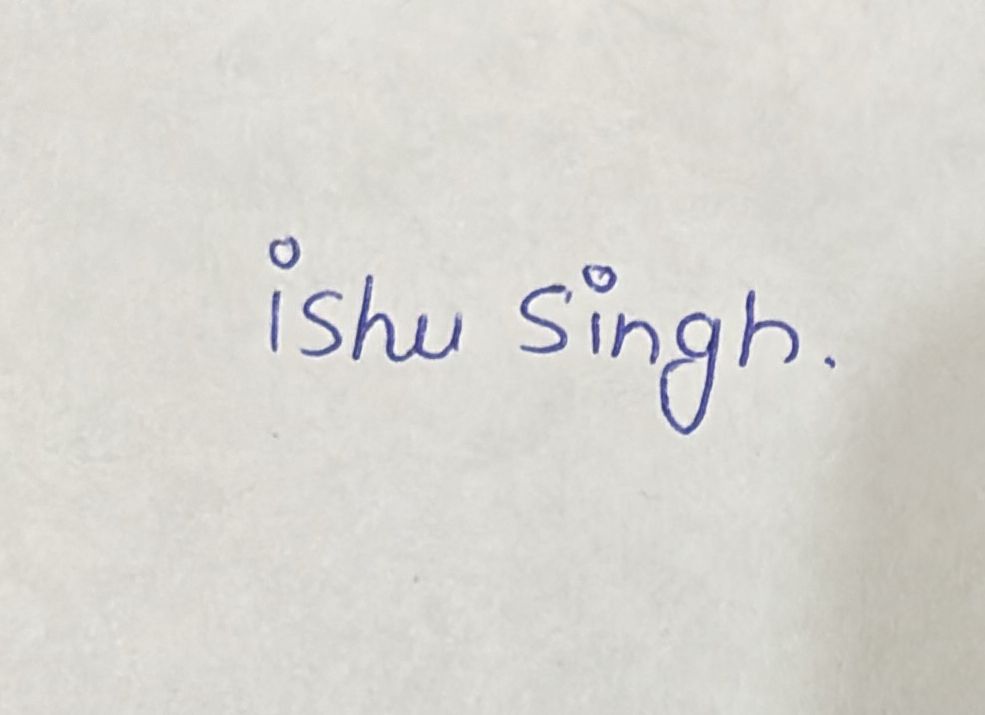 ishu singh.